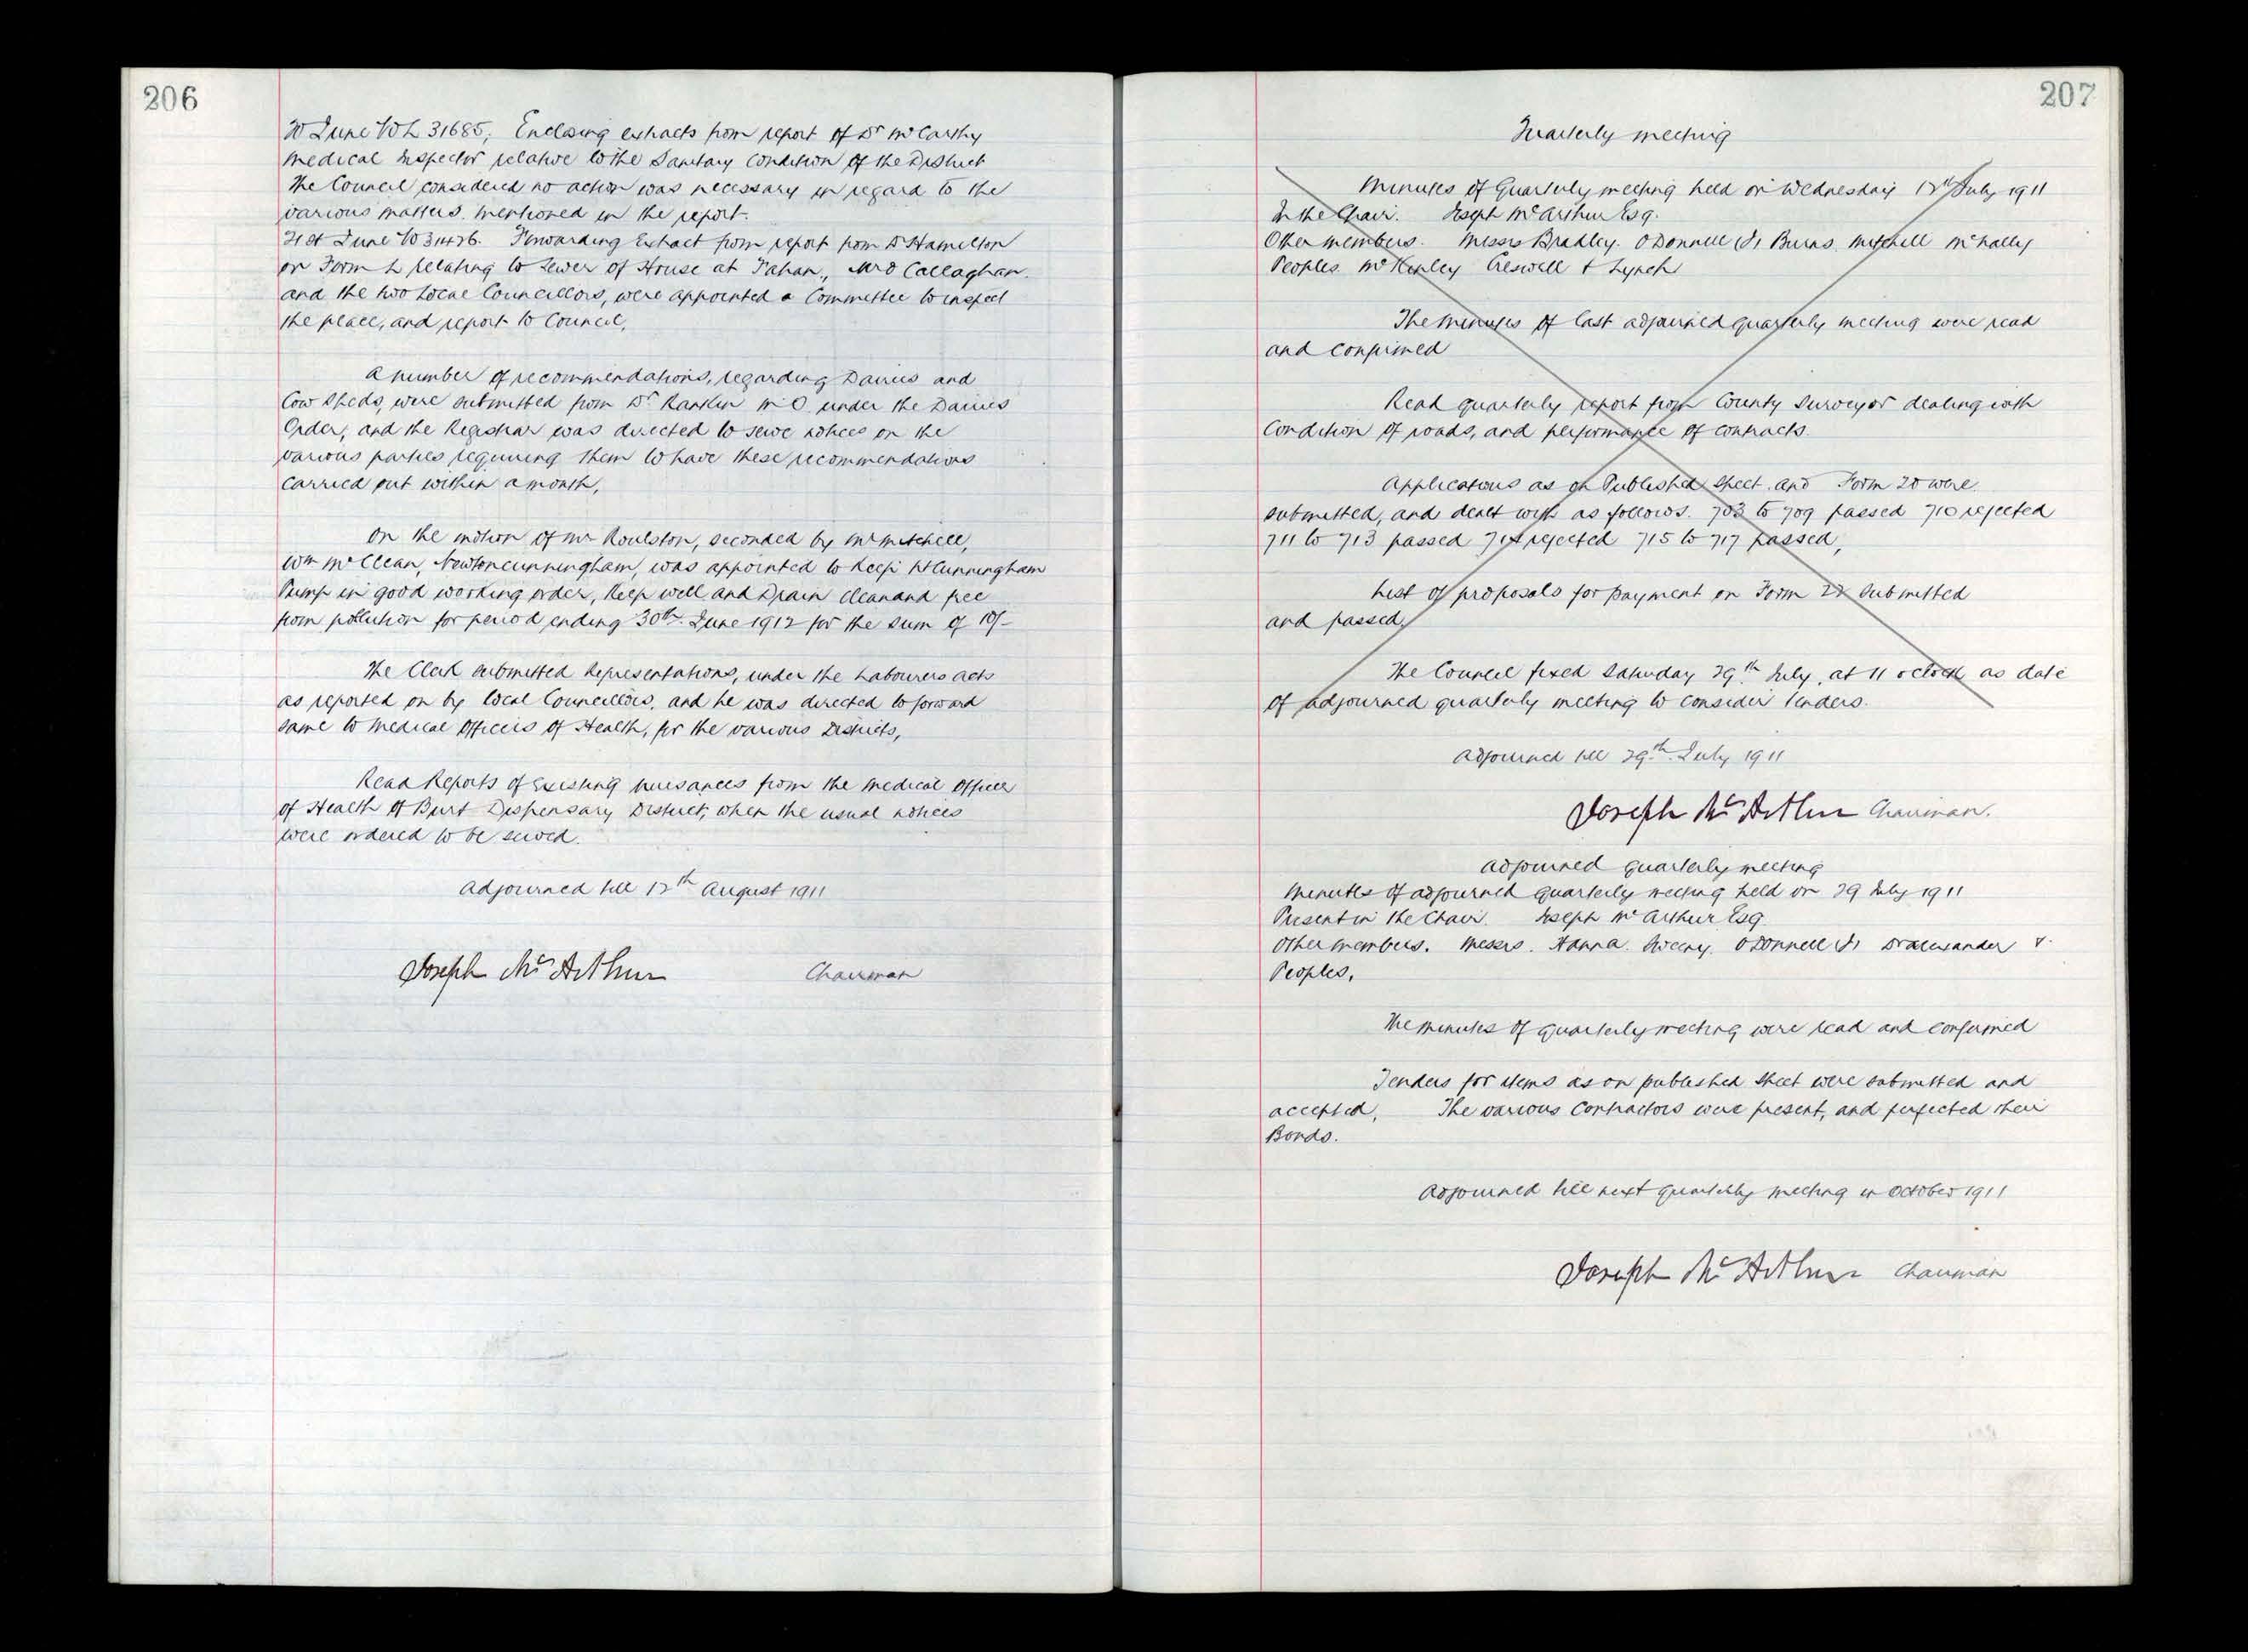 206
20 June No L 31685, Enclosing extracts from report of Dr McCarthy
Medical Inspector relative to the Sanitary Condition of the District
The Council considered no action was necessary in regard to the
various matters mentioned in the report.
21st June No Forwarding Extract from report from Dr Hamilton
on Form L relating to Sewer of House at Fahan, Callaghan
and the two Local Councillors, were appointed a Committee to inspect
the place, and report to Council,
A number of recommendations, regarding Dairies and
Cow Sheds, were submitted from Dr Rankin M.O. under the Dairies
Order, and the Registrar was directed to serve notices on the
various parties requiring them to have these recommendations
carried out within a month,
On the motion of Mr Roulston, seconded by Mr Mitchell,
Wm McClean, Newtoncunningham, was appointed to keep Nt Cunningham
Pump in good working order, keep well and Drain clean and free
from pollution for period ending 30th June 1912 for the sum of 10/-
The Clerk submitted Representations, under the Labourers Acts
as reported on by local Councillors, and he was directed to forward
same to Medical Officers of Health, for the various Districts,
Read Reports of Existing nuisances from the Medical Officer
of Health of Burt Dispensary District, when the usual notices
were ordered to be served.
Adjourned till 12th August 1911
Joseph McArthur Chairman
207
Quarterly meeting
Minutes of Quarterly meeting held on Wednesday 12th July 1911
In the Chair. Joseph McArthur Esq.
Other members. Messrs Bradley. ODonnell Jr Burns Mitchell McNally
Peoples. McKinley Creswell & Lynch
The Minutes of last adjourned quarterly meeting were read
and confirmed
Read quarterly report from County Surveyor dealing with
Condition of roads, and performance of contracts.
Applications as on Published sheet and Form 20 were
submitted, and dealt with as follows. 703 to 709 passed 710 rejected
711 to 713 passed 714 rejected 715 to 717 passed,
List of proposals for payment on Form 22 submitted
and passed,
The Council fixed Saturday 29th July, at 11 oclock as date
of adjourned quarterly meeting to consider Tenders.
Adjourned till 29th July 1911
Joseph McArthur Chairman.
Adjourned quarterly meeting
Minutes of adjourned quarterly meeting held on 29 July 1911
Present in the Chair. Joseph McArthur Esq
Other members. Messrs. Hanna. Sweeny. ODonnell Jr Dr Alexander &
Peoples.
The minutes of quarterly meeting were read and confirmed
Tenders for items as on published sheet were submitted and
accepted, The various Contractors were present, and perfected their
Bonds.
Adjourned till next quarterly meeting in October 1911
Joseph McArthur Chairman